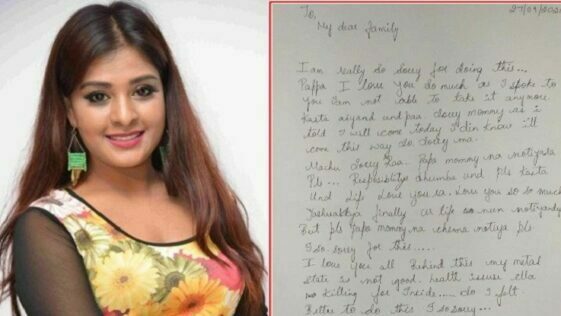 To,
27/09/202
My dear family
I am really so sorry for doing this...
Pappa I love you so much as I spoke to
you I am not able to take it anymore
Kasta aiyand and paa. Sorry mommy as i
told I will come today I din know ill
come this way so sorry ma.
Machu sorry kaa... Papa mommy na notiyosta
Pls... Resposiblity dhumba and pls kasta
and life Love you sa. Love you so so much
finally life nin notiyandy
But pls papa mommy na chenna notiya pls
I so sorry for this.....
I love you all Behind this my metal
state is not good. health issues ella
Killing for Inside.... So I felt
Better to do this I so sorry...